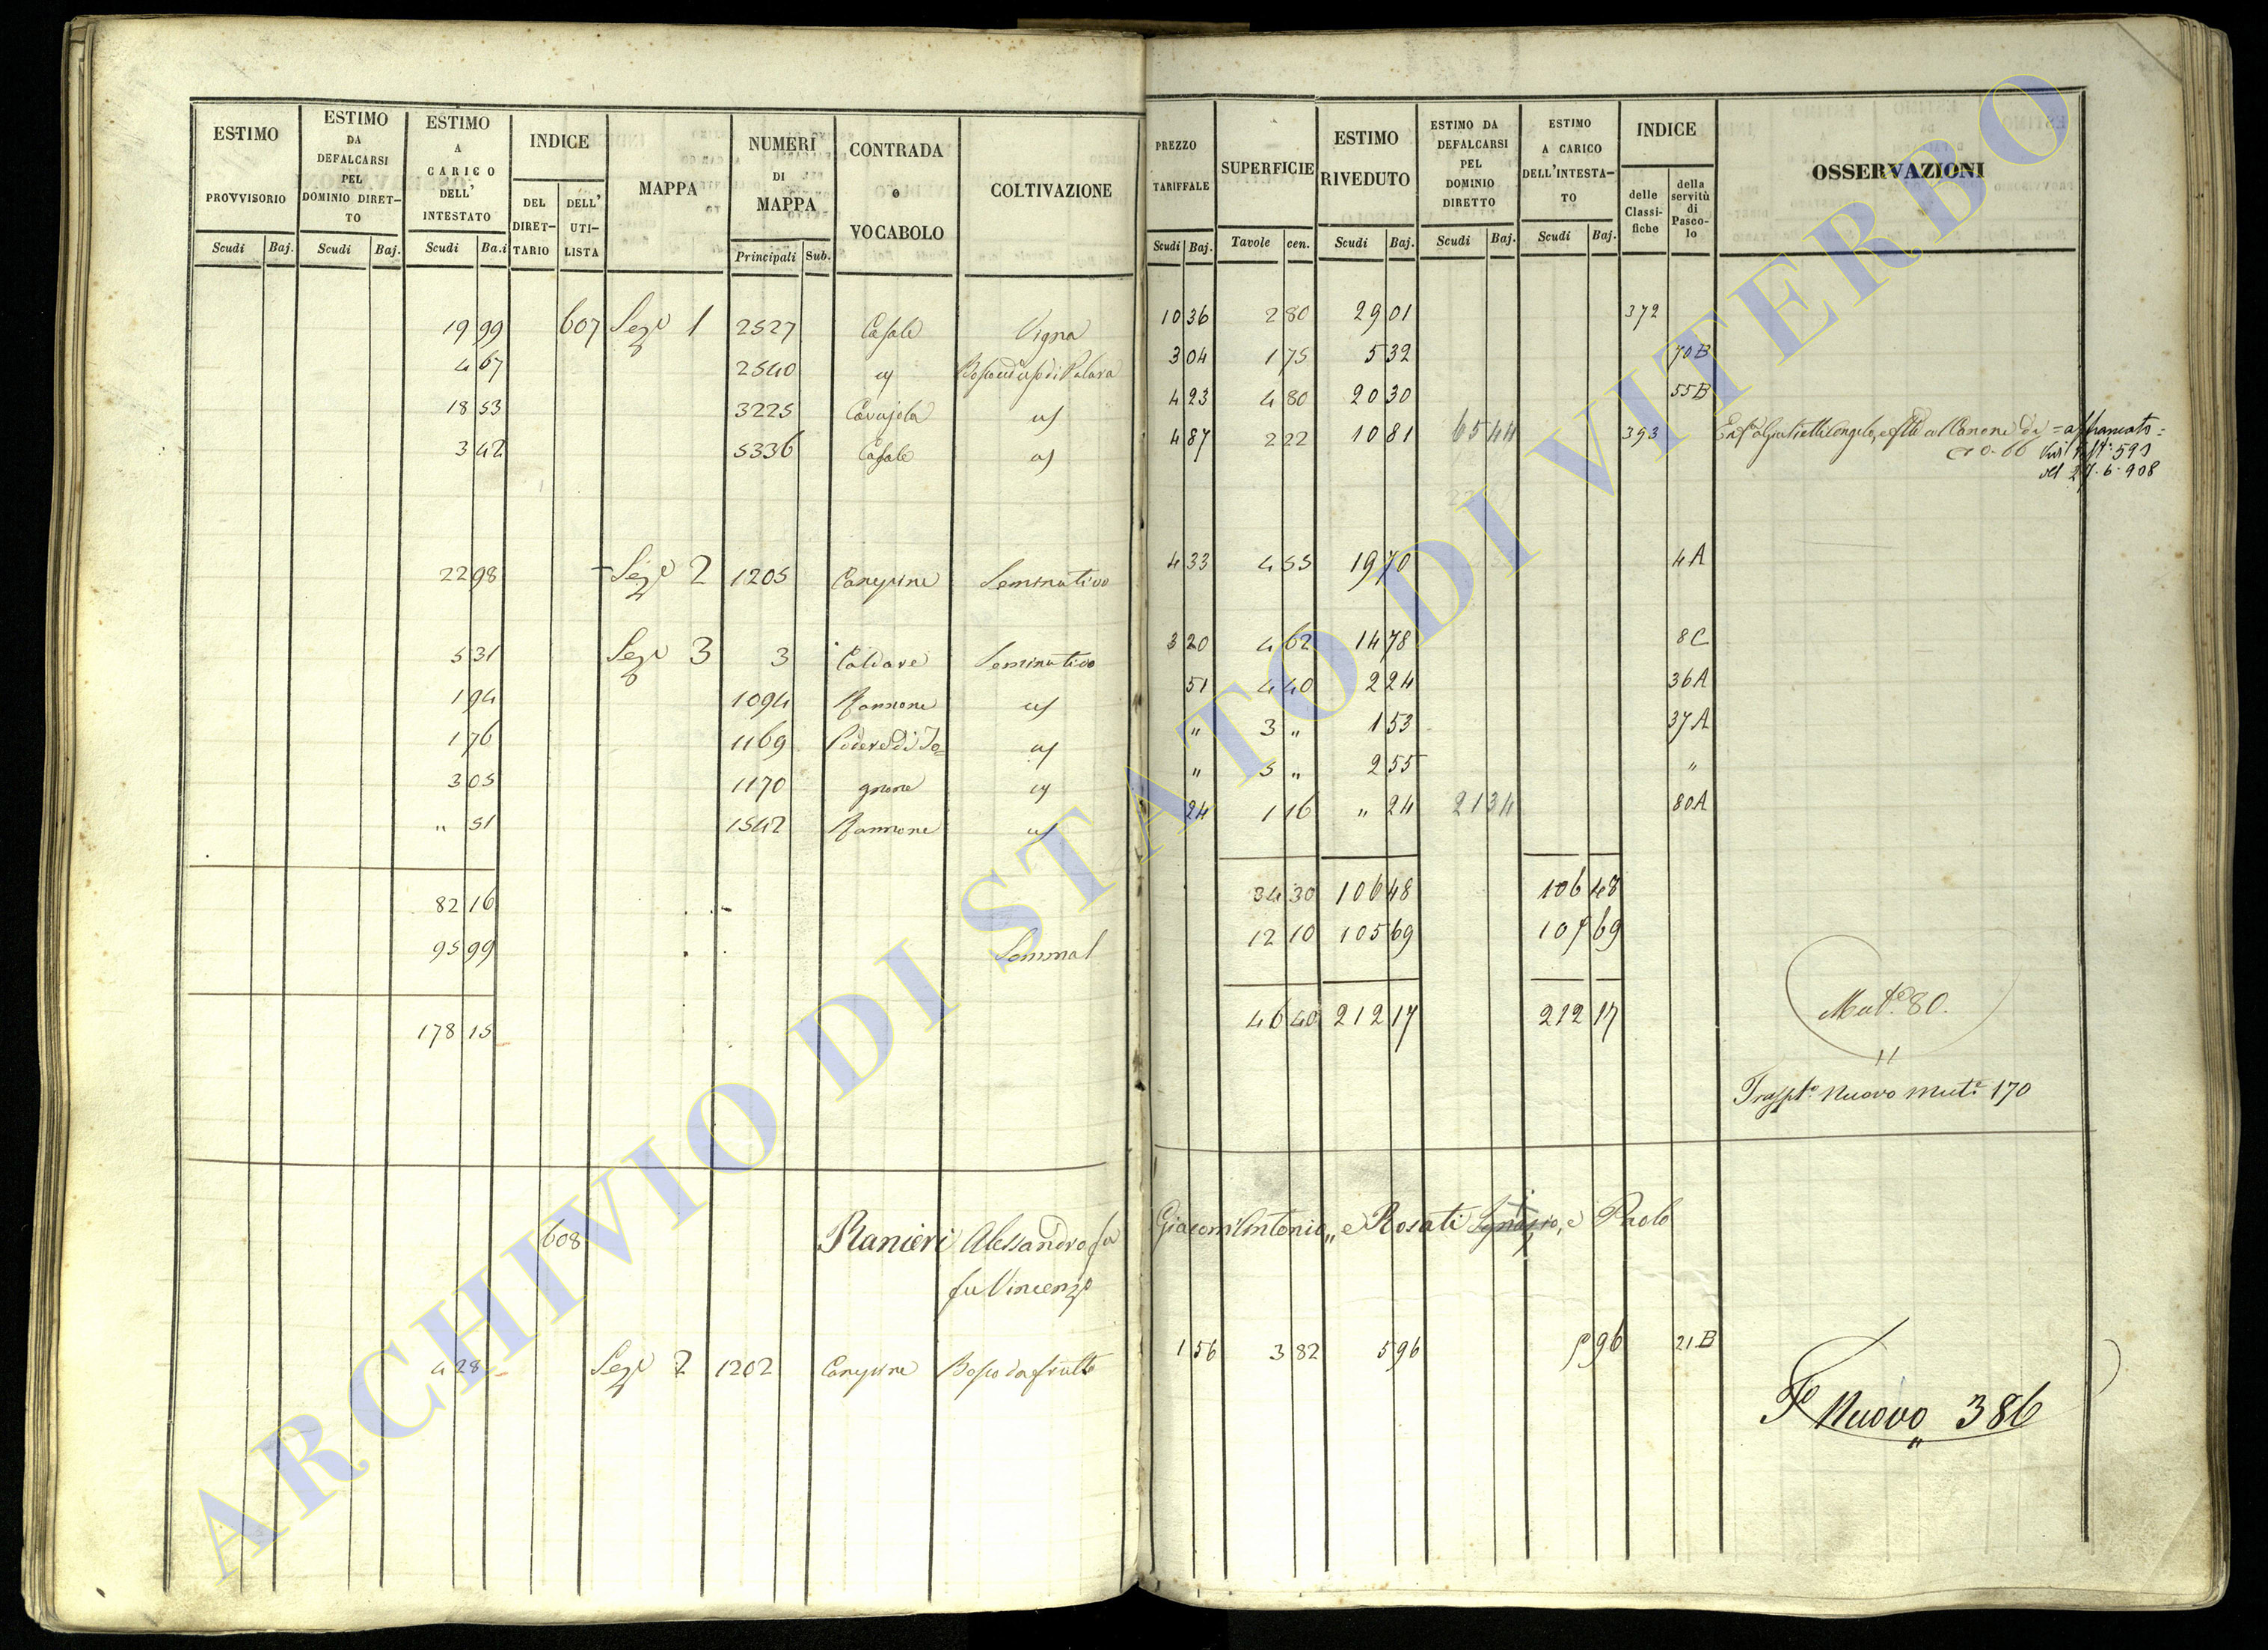 ESTIMO PROVVISORIO Scudi Baj.
ESTIMO DA DEFALCARSI PEL DOMINIO DIRETTO Scudi Baj.
ESTIMO A CARICO DELL' INTESTATO Scudi Ba.i
INDICE DEL DIRETTARIO DELL' UTILISTA
MAPPA
NUMERI DI MAPPA Principali Sub.
CONTRADA o VOCABOLO
COLTIVAZIONE
PREZZO TARIFFALE Scudi Baj.
SUPERFICIE Tavole cen.
ESTIMO RIVEDUTO Scudi Baj.
ESTIMO DA DEFALCARSI PEL DOMINIO DIRETTO Scudi Baj.
ESTIMO A CARICO DELL'INTESTATO Scudi Baj.
INDICE delle Classifiche della servitù di Pascolo
OSSERVAZIONI
19 99 607 Sez.e 1 2527 Casale Vigna 10 36 2 80 29 01 372
4 67 2540 3 04 1 75 5 32 70B
18 53 3225 4 23 4 80 20 30 55B
3 42 5336 Casale 4 87 2 22 10 81 65 44 393
22 98 Sez.e 2 1205 Canepine Seminativo 4 33 4 55 19 70 4A
5 31 Sez.e 3 3 Caldare Seminativo 3 20 4 62 14 78 8C
1 94 1094 51 4 40 2 24 36A
1 76 1169 Podere di To= " 3 " 1 53 37A
3 05 1170 gnone " 5 " 2 55 "
" 51 1542 24 1 16 " 24 21 34 80A
82 16 34 30 106 48 106 48
95 99 12 10 105 69 69
178 15 46 40 212 17 212 17
Mut.e 80.
Nuovo Mut.e 170
608 Ranieri Alessandro fu Giacom'Antonio, e Rosati Ignazio, e Paolo
fu Vincenzo
4 28 Sez.e 2 1202 Canepine Bosco da frutto 1 56 3 82 5 96 5 96 21B
Nuovo 386
ARCHIVIO DI STATO DI VITERBO